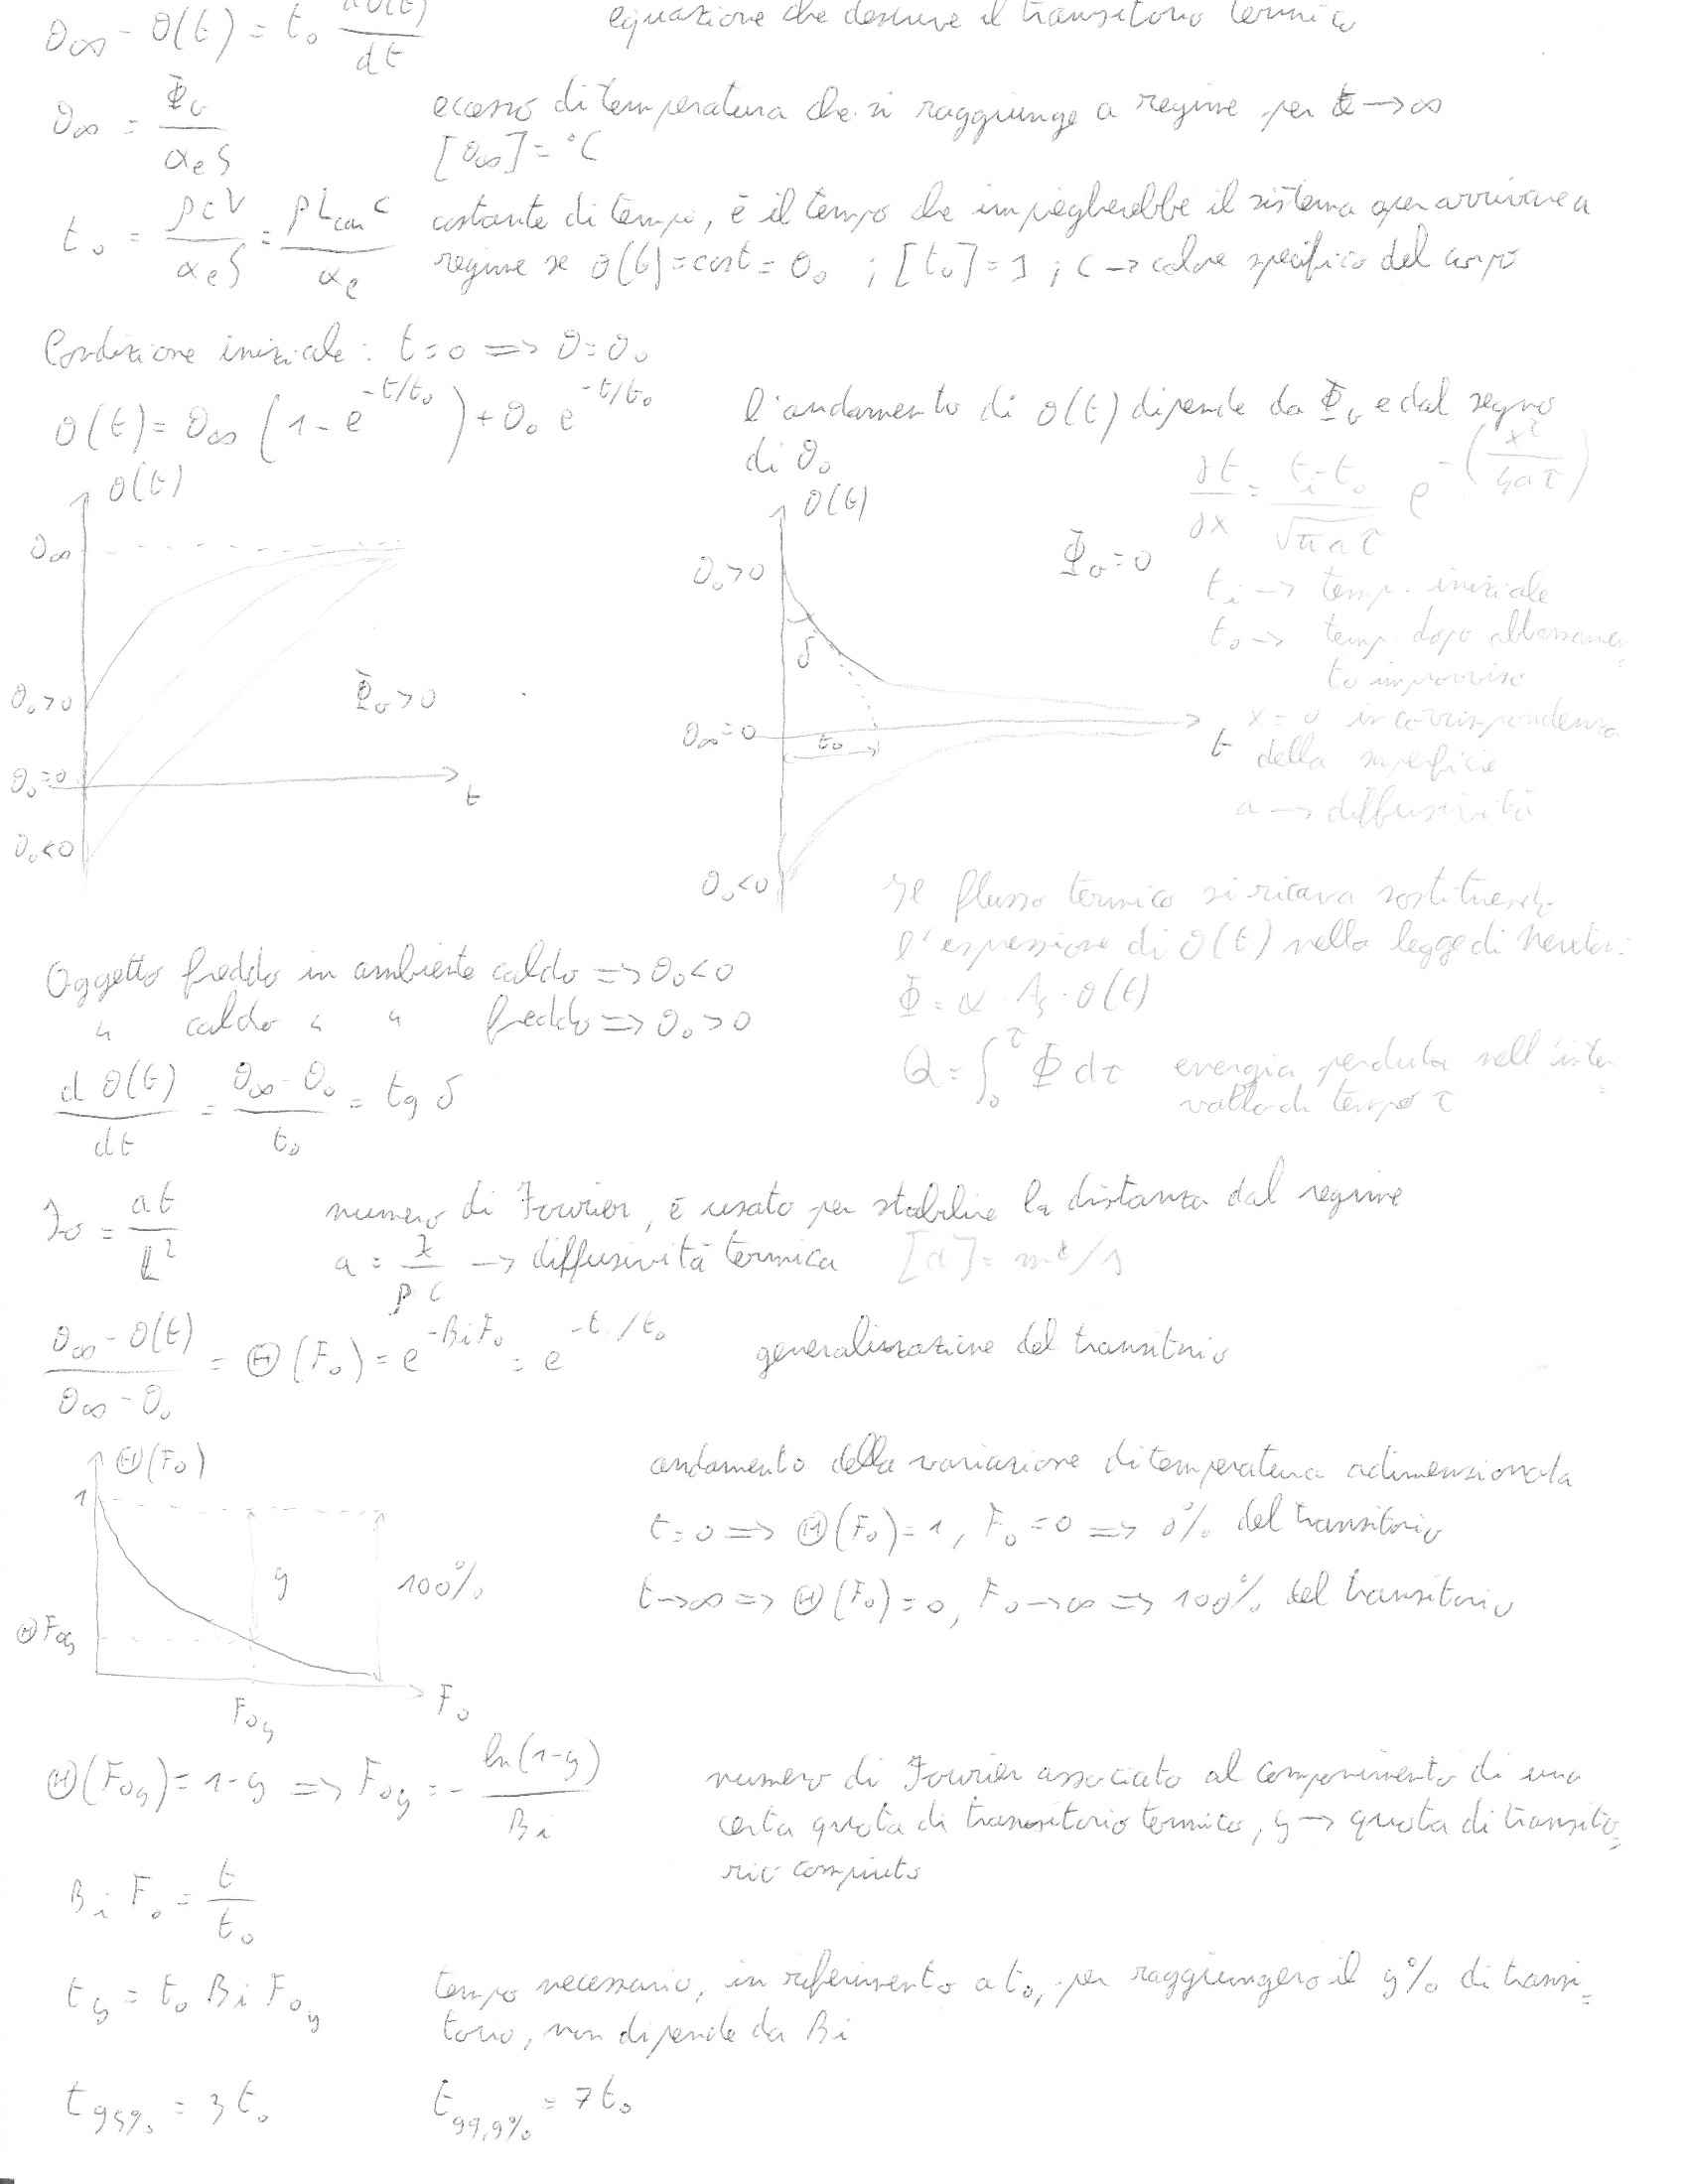 ϑ∞ - ϑ(t) = t₀ dϑ(t)/dt    equazione che descrive il transitorio termico
ϑ∞ = Φ̇σ/(αₑS)    eccesso di temperatura che si raggiunge a regime per t→∞
[ϑ∞] = °C
t₀ = ρcV/(αₑS) = ρL_car c/αₑ    costante di tempo, è il tempo che impiegherebbe il sistema per arrivare a
regime se ϑ(t)=cost=ϑ₀ ; [t₀]=s ; c → calore specifico del corpo
Condizione iniziale: t=0 => ϑ=ϑ₀
ϑ(t) = ϑ∞ (1 - e^(-t/t₀)) + ϑ₀ e^(-t/t₀)    l'andamento di ϑ(t) dipende da Φ̇σ e dal segno
di ϑ₀
ϑ(t)
ϑ∞
ϑ₀>0
Φ̇σ>0
ϑ₀=0
t
ϑ₀<0
ϑ(t)
ϑ₀>0
Φ̇σ=0
δ
ϑ∞=0
t₀
t
ϑ₀<0
∂t/∂x = (tᵢ-t₀)/√(πaτ) e^-(x²/4aτ)
tᵢ → temp. iniziale
t₀ → temp. dopo abbassamen=
to improvviso
x=0 in corrispondenza
della superficie
a → diffusività
Il flusso termico si ricava sostituendo
l'espressione di ϑ(t) nella legge di Newton:
Φ̇ = α · Aₛ · ϑ(t)
Q = ∫₀^τ Φ̇ dτ    energia perduta nell'inter=
vallo di tempo τ
Oggetto freddo in ambiente caldo => ϑ₀<0
" caldo " " freddo => ϑ₀>0
dϑ(t)/dt = (ϑ∞-ϑ₀)/t₀ = tg δ
Fo = at/L²    numero di Fourier, è usato per stabilire la distanza dal regime
a = λ/(ρc) → diffusività termica    [a] = m²/s
(ϑ∞-ϑ(t))/(ϑ∞-ϑ₀) = Θ(Fo) = e^(-BiFo) = e^(-t/t₀)    generalizzazione del transitorio
Θ(Fo)
1
y
100%
ΘFoy
Foy
Fo
andamento della variazione di temperatura adimensionata
t=0 => Θ(Fo)=1, Fo=0 => 0% del transitorio
t→∞ => Θ(Fo)=0, Fo→∞ => 100% del transitorio
Θ(Foy) = 1-y => Foy = - ln(1-y)/Bi    numero di Fourier associato al componimento di una
certa quota di transitorio termico, y → quota di transito=
rio compiuto
Bi Fo = t/t₀
ty = t₀ Bi Foy    tempo necessario, in riferimento a t₀, per raggiungere il y% di transi=
torio, non dipende da Bi
t95% = 3t₀    t99,9% = 7t₀